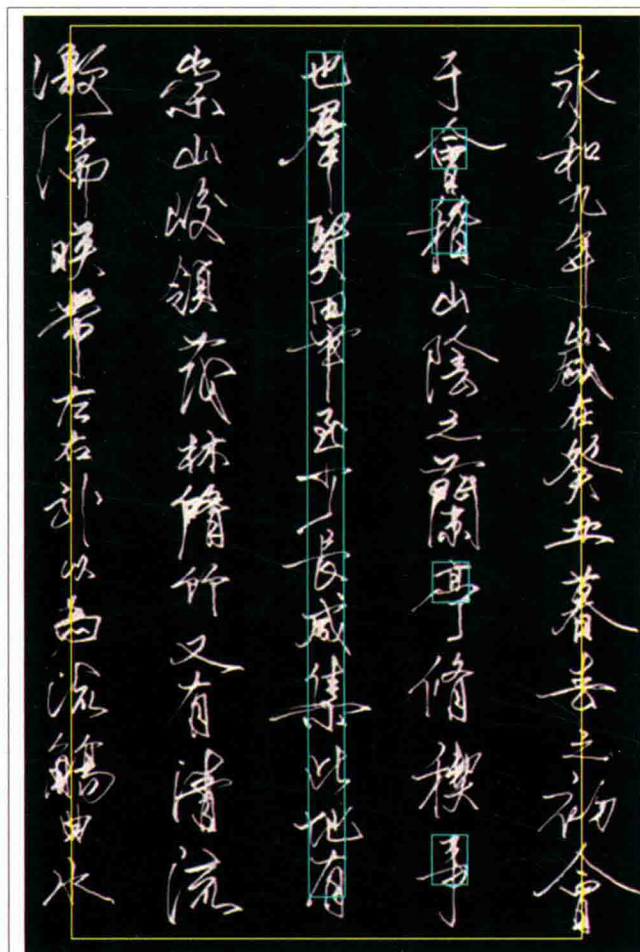 永和九年歲在癸丑暮春之初會
于會稽山陰之蘭亭脩稧事
也羣賢畢至少長咸集此地有
崇山峻領茂林脩竹又有清流
激湍暎帶左右引以為流觴曲水